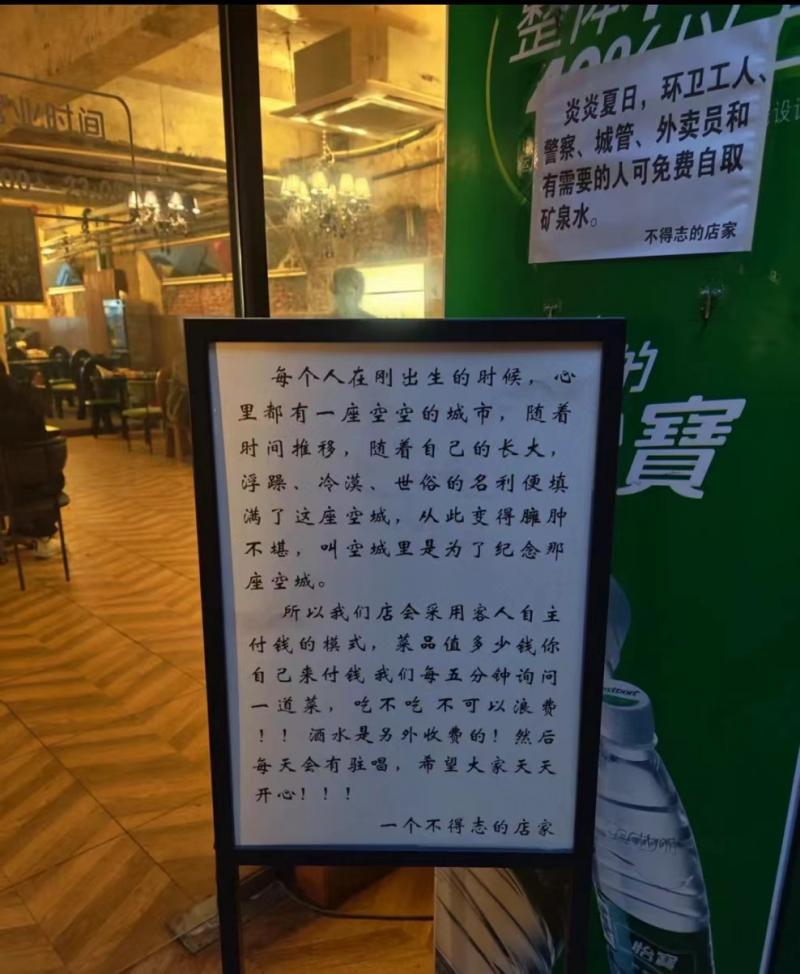 业时间
炎炎夏日，环卫工人、
警察、城管、外卖员和
有需要的人可免费自取
矿泉水。
不得志的店家
每个人在刚出生的时候，心
里都有一座空空的城市，随着
时间推移，随着自己的长大，
浮躁、冷漠、世俗的名利便填
满了这座空城，从此变得臃肿
不堪，叫空城里是为了纪念那
座空城。
所以我们店会采用客人自主
付钱的模式，菜品值多少钱你
自己来付钱 我们每五分钟询问
一道菜，吃不吃 不可以浪费
！！ 酒水是另外收费的！然后
每天会有驻唱，希望大家天天
开心！！！
一个不得志的店家
整体
的
寶
怡寶